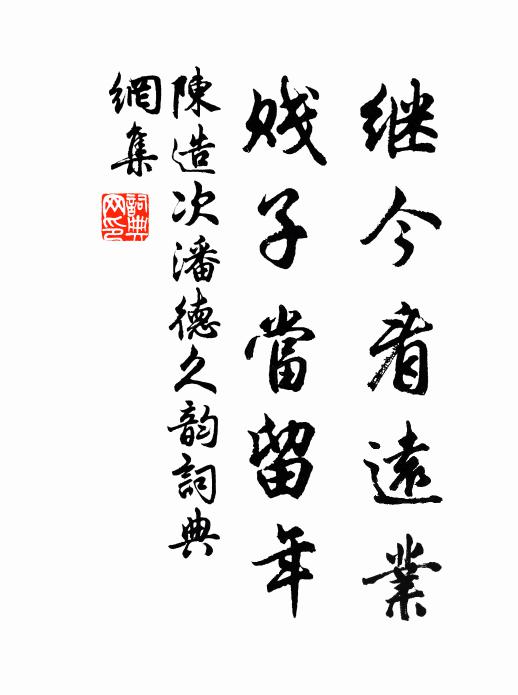 継今看遠業
賤子當留年
陳造次潘德久韵詞典
網集
詞典網印